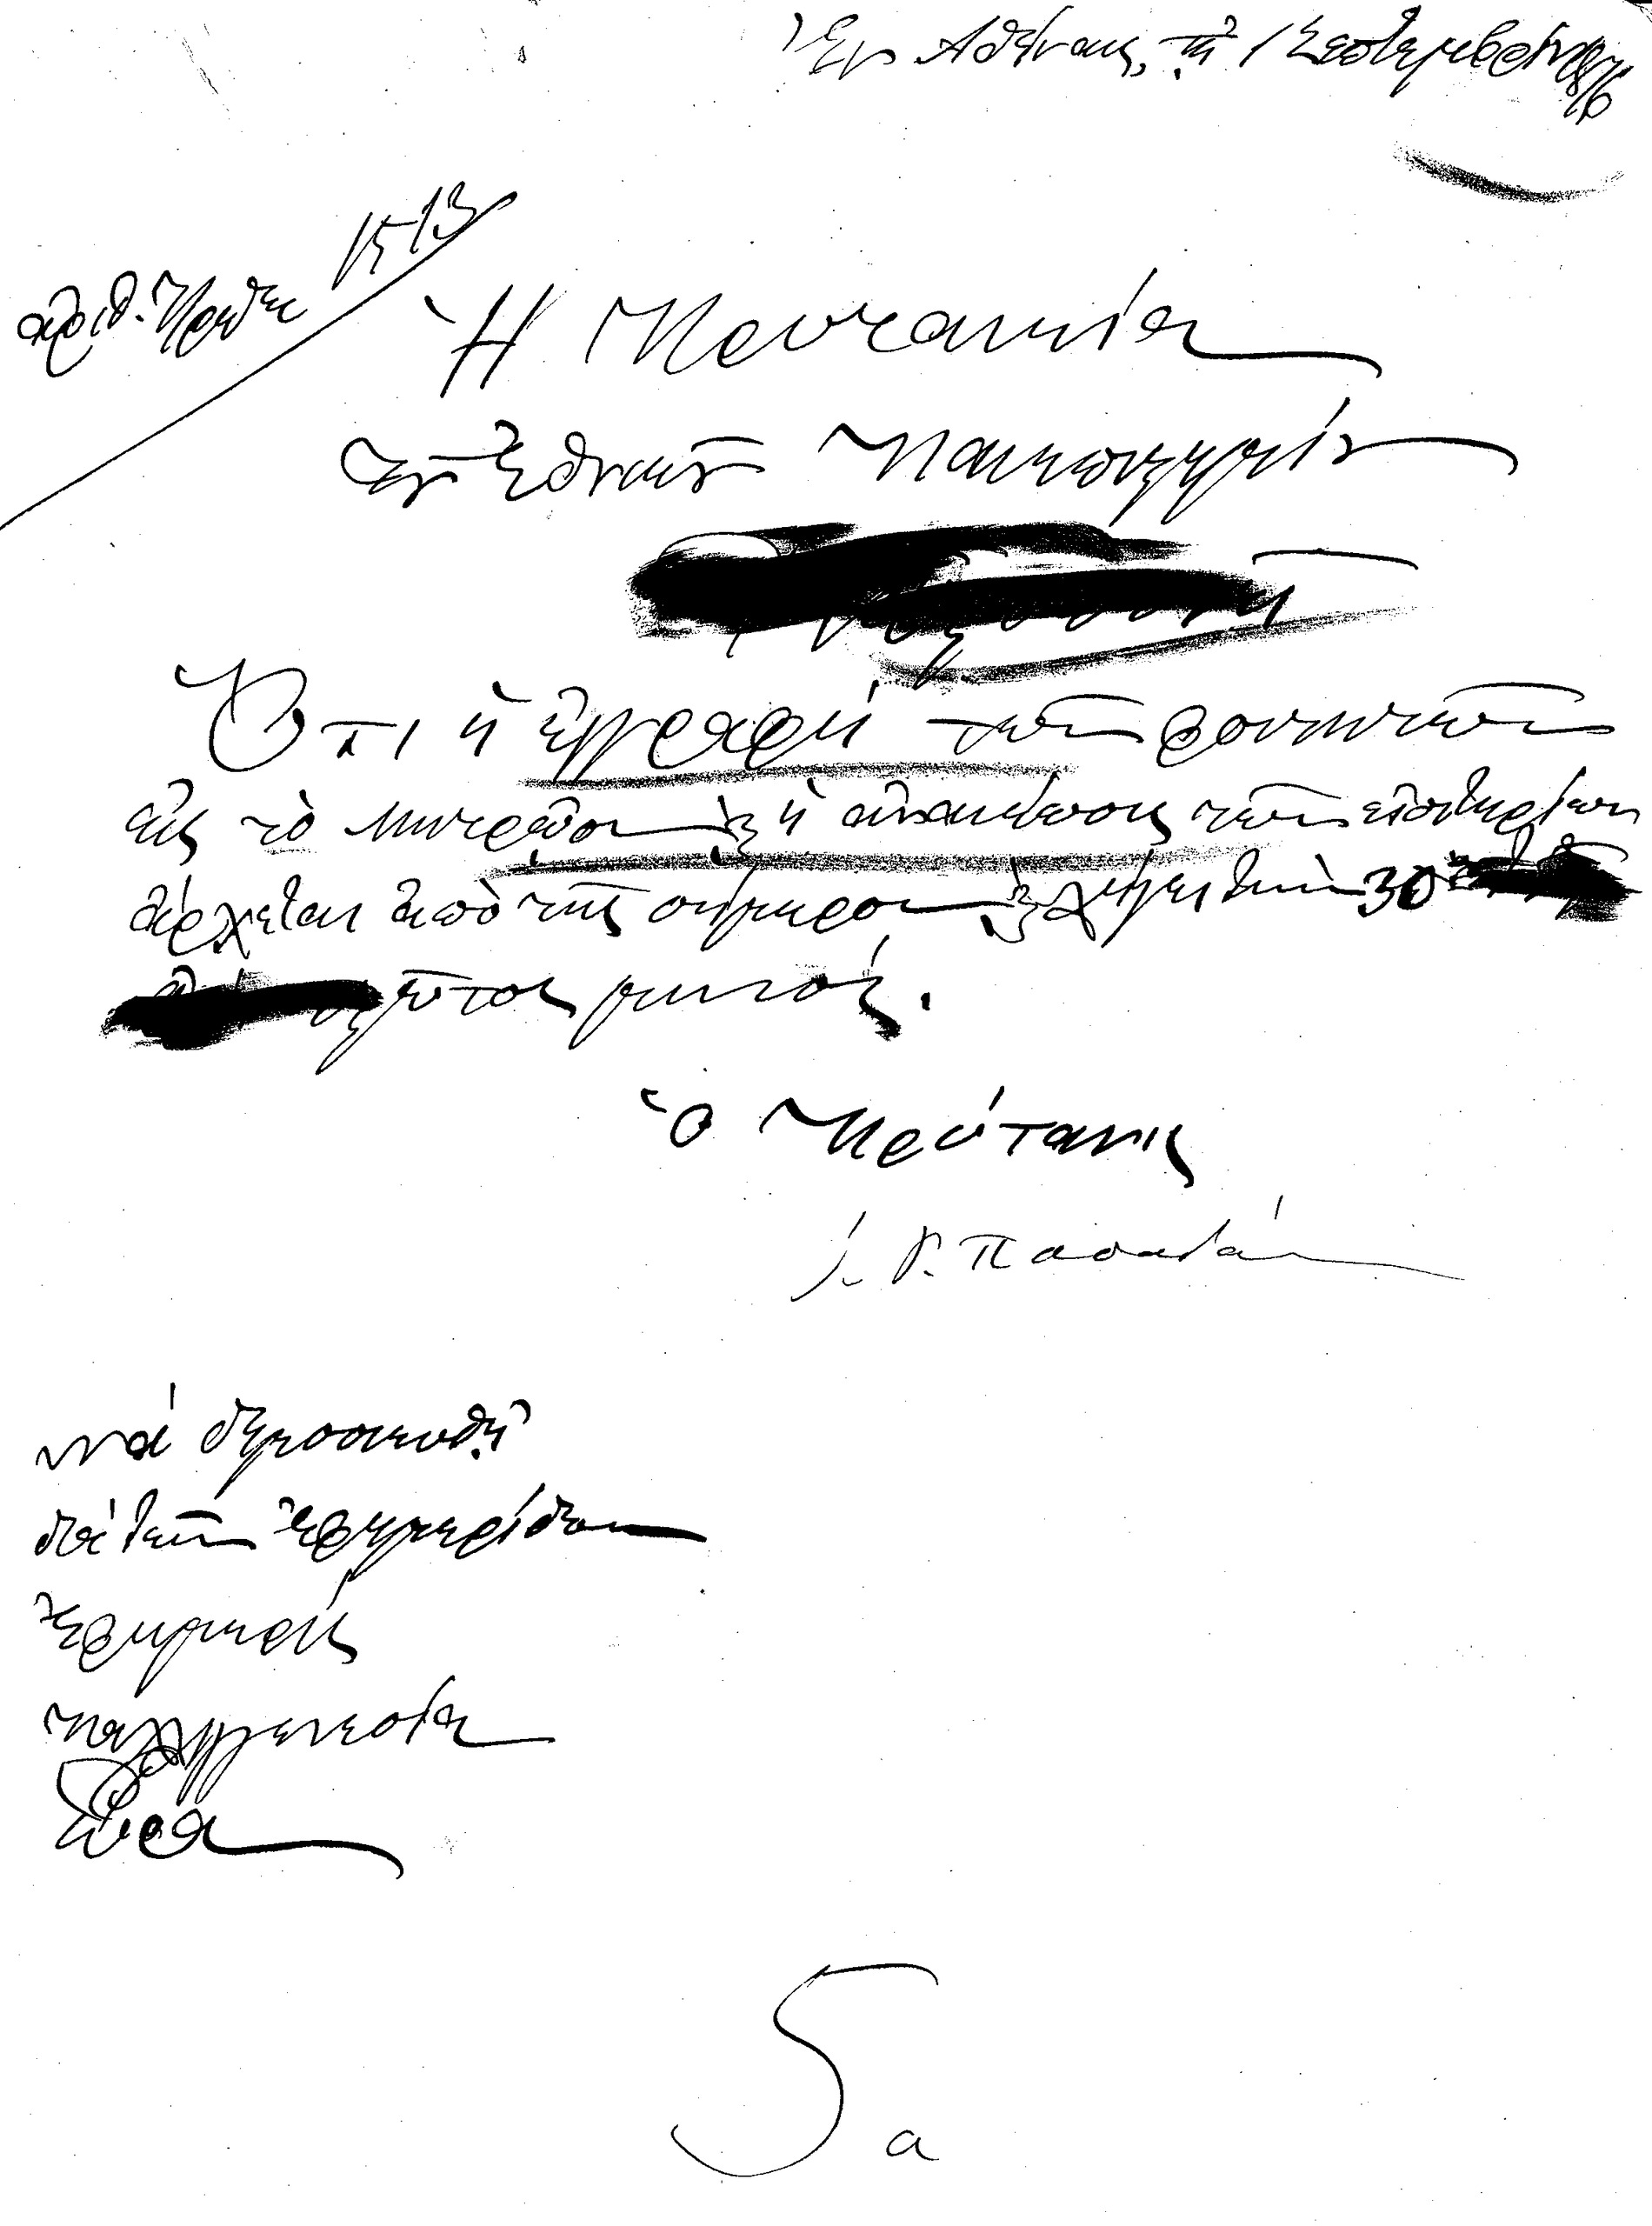 Ἐν Ἀθήναις, τῇ 1 Σεπτεμβρίου 1876
ἀριθ. Πρωτ. 1513
Ἡ Πρυτανεία
τοῦ Ἐθνικοῦ Πανεπιστημίου
Ὅτι ἡ ἐγγραφὴ τῶν φοιτητῶν
εἰς τὸ μητρῷον καὶ ἡ ἀνανέωσις τῶν εἰσιτηρίων
ἄρχεται ἀπὸ τῆς σήμερον καὶ λήγει τὴν 30
μηνός.
Ὁ Πρύτανις
νὰ δημοσιευθῇ
διὰ τῶν ἐφημερίδων
Ἐφημερὶς
Παλιγγενεσία
Ὥρα
5
α